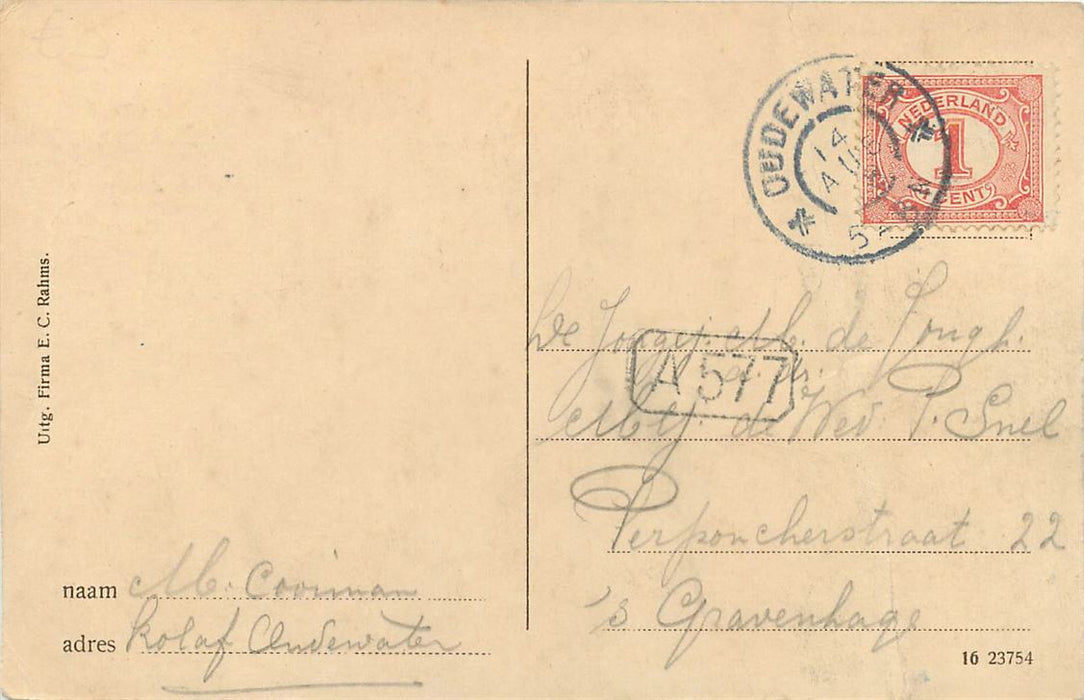 Uitg. Firma E. C. Rahms.
naam M. Cooiman
adres Kolaf Oudewater
OUDEWATER
14
AUG
5-6N
NEDERLAND
1
CENT
De Jongej. M. de Jongh.
A 577
a. dr.
Mej. de Wed. P. Snel
Perponcherstraat 22
's Gravenhage
16 23754